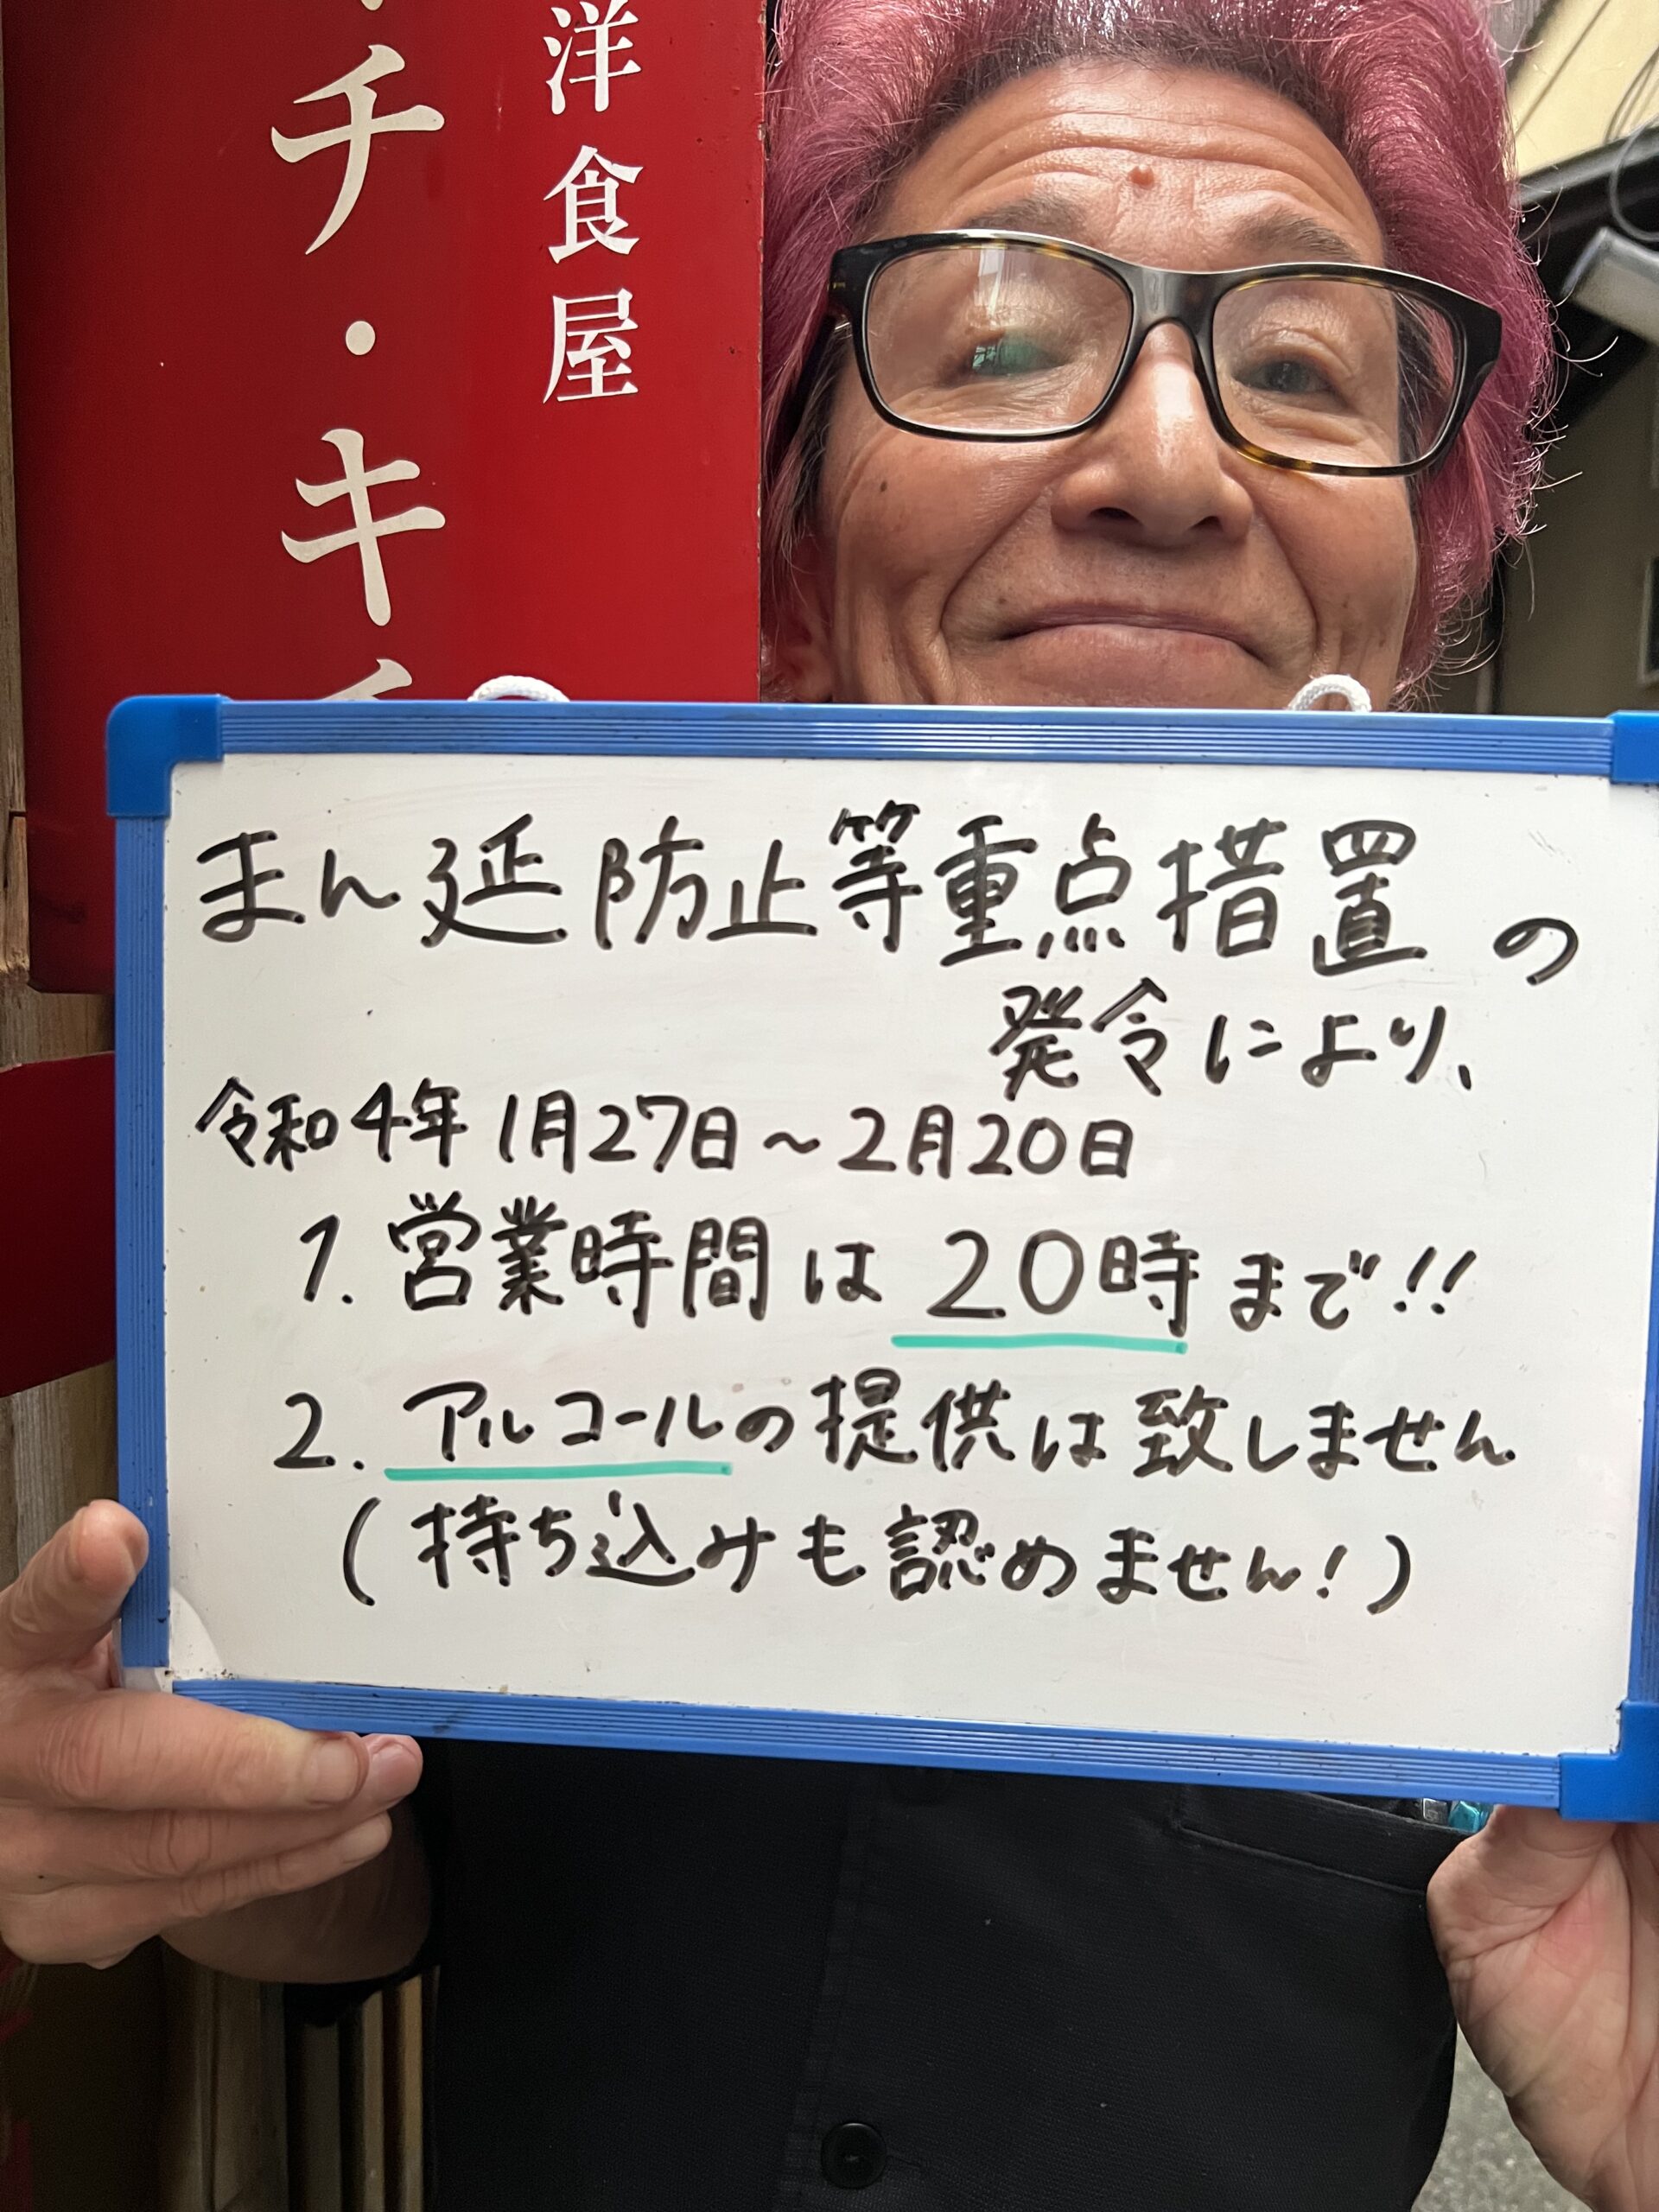 洋食屋
チ・キチ
まん延防止等重点措置の
発令により、
令和4年1月27日～2月20日
1. 営業時間は20時まで!!
2. アルコールの提供は致しません
(持ち込みも認めません!)